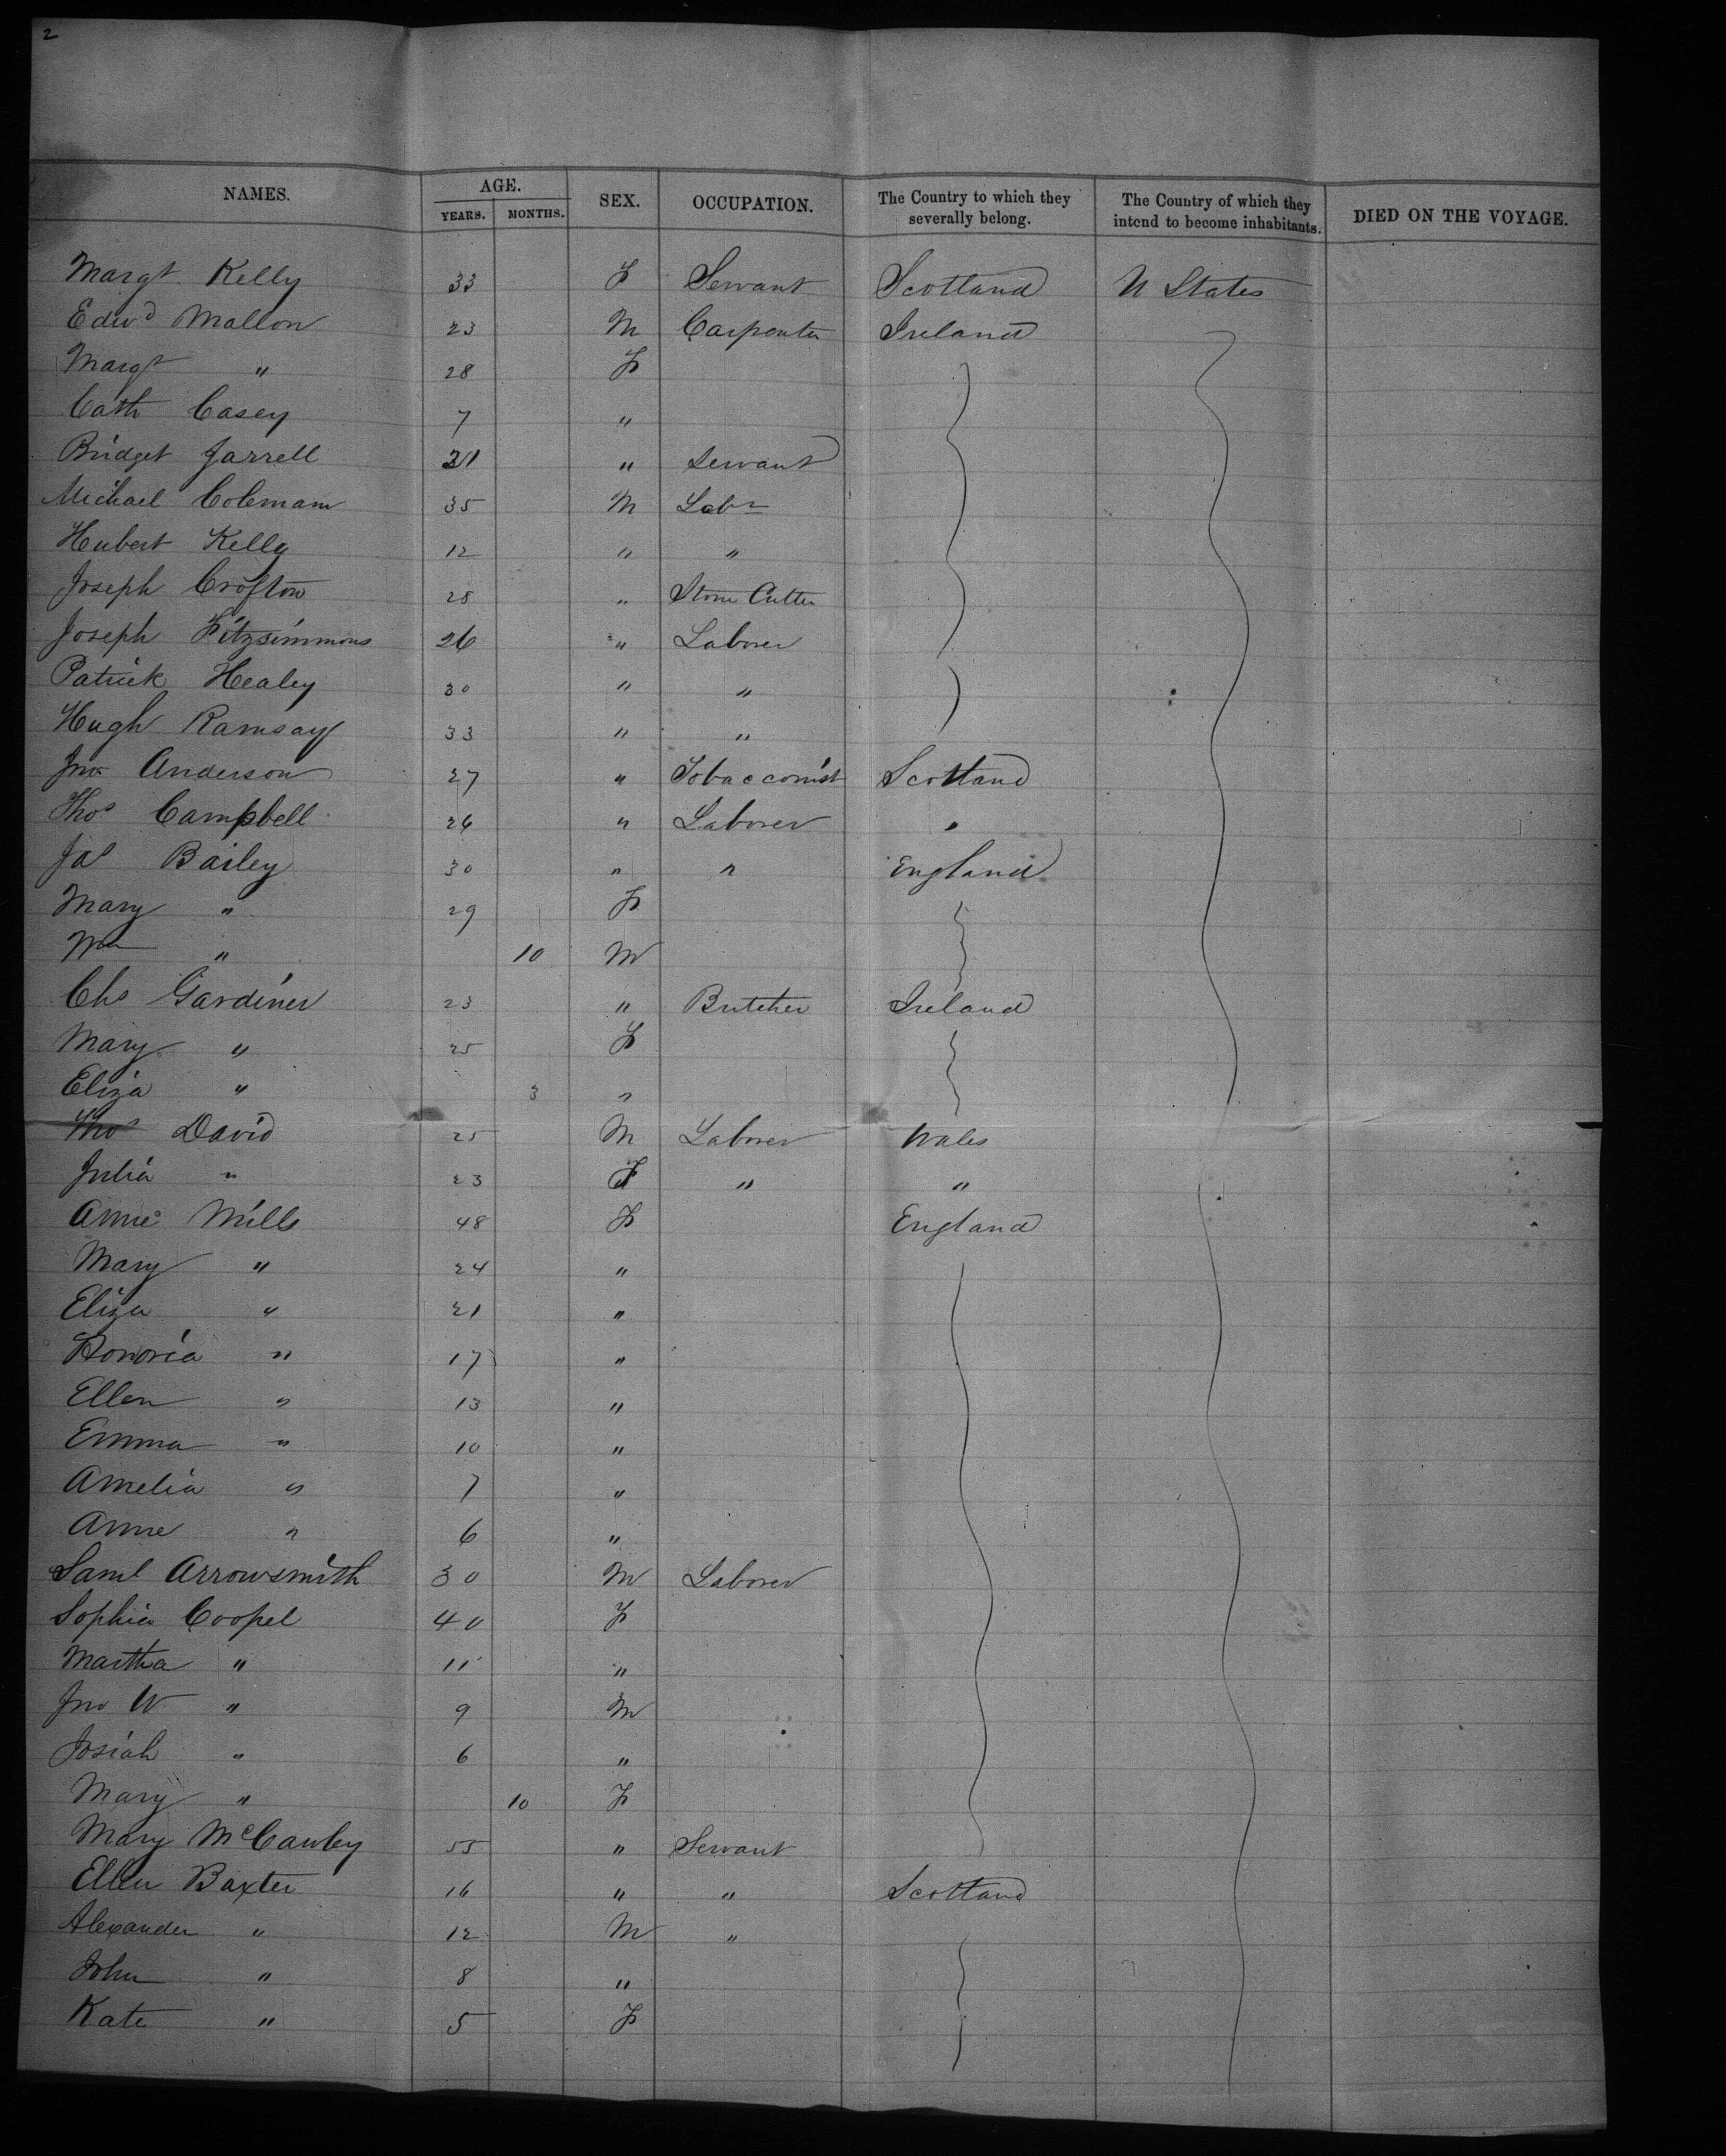 2
NAMES. AGE. YEARS. MONTHS. SEX. OCCUPATION. The Country to which they severally belong. The Country of which they intend to become inhabitants. DIED ON THE VOYAGE.
Margt Kelly 33 F Servant Scotland U States
Edwd Mallon 23 M Carpenter Ireland
Margt " 28 F
Cath Casey 7 "
Bridget Farrell 21 " Servant
Michael Coleman 35 M Labr
Hubert Kelly 12 " "
Joseph Crofton 28 " Stone Cutter
Joseph Fitzsimmons 26 " Laborer
Patrick Healey 30 " "
Hugh Ramsay 33 " "
Jno Anderson 27 " Tobacconist Scotland
Thos Campbell 26 " Laborer "
Jas Bailey 30 " " England
Mary " 29 F
Wm " 10 M
Chs Gardiner 23 " Butcher Ireland
Mary " 25 F
Eliza " 3 "
Thos David 25 M Laborer Wales
Julia " 23 F " "
Anne Mills 48 F England
Mary " 24 "
Eliza " 21 "
Honoria " 17 "
Ellen " 13 "
Emma " 10 "
Amelia " 7 "
Anne " 6 "
Saml Arrowsmith 30 M Laborer
Sophia Coopel 40 F
Martha " 11 "
Jno W " 9 M
Josiah " 6 "
Mary " 10 F
Mary McCawley 55 " Servant
Ellen Baxter 16 " " Scotland
Alexander " 12 M "
John " 8 "
Kate " 5 F